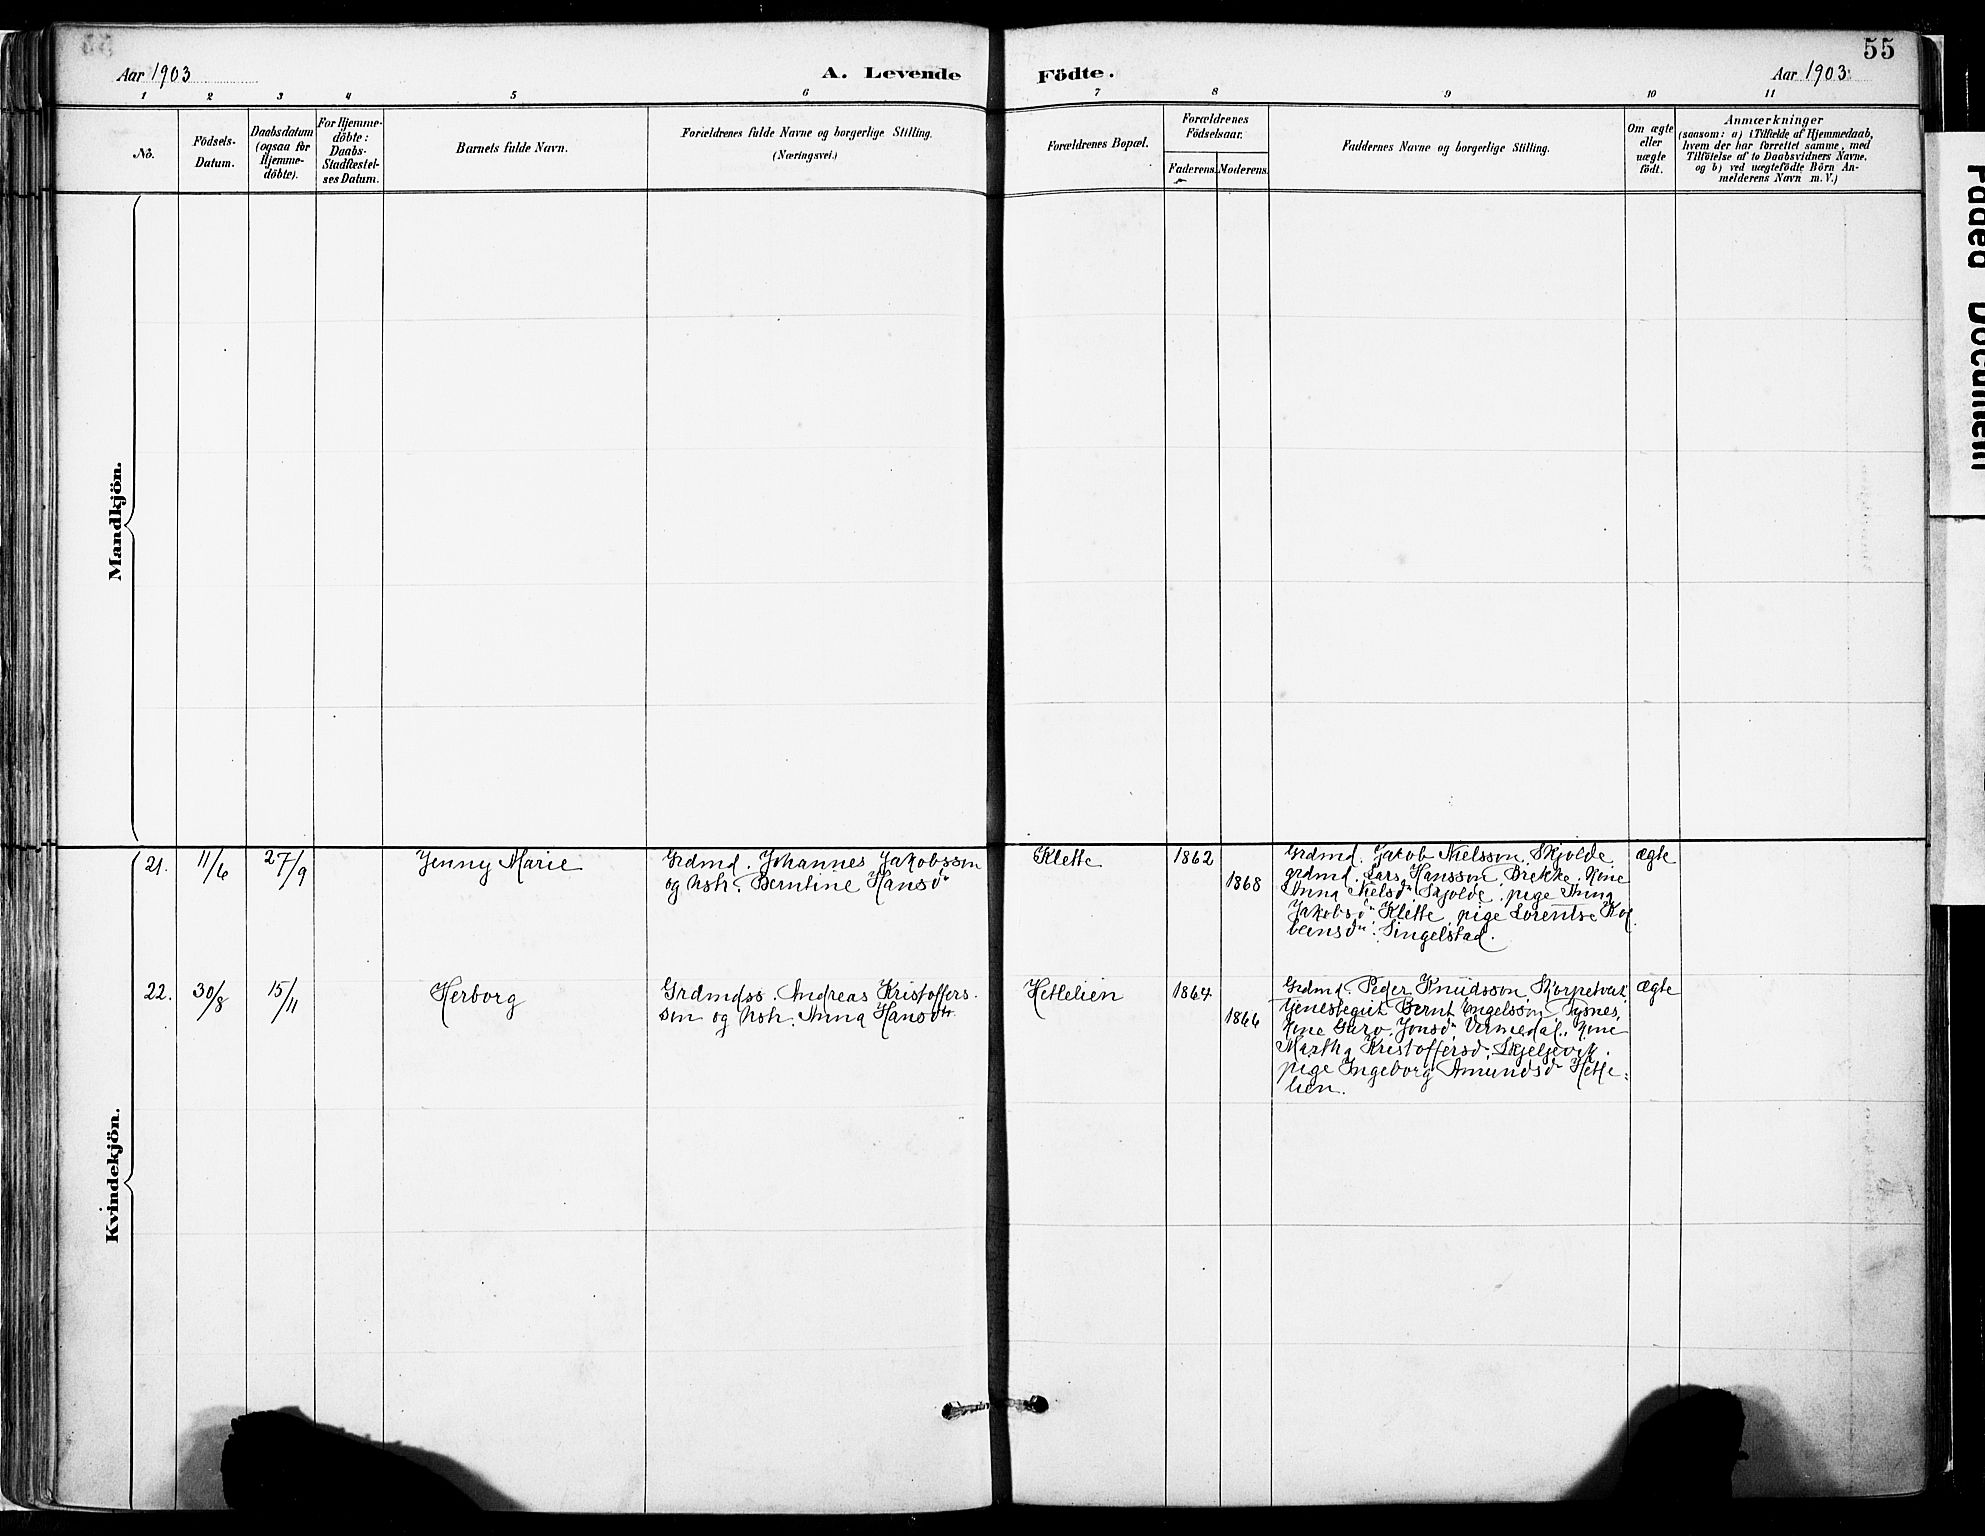 55
Aar 1903
A. Levende Födte.
Aar 1903.
1 2 3 4 5 6 7 8 9 10 11
No.
Födsels-
Datum.
Daabsdatum
(ogsaa for
Hjemme-
döbte).
For Hjemme-
döbte:
Daabs-
Stadfæstel-
ses Datum.
Barnets fulde Navn.
Forældrenes fulde Navne og borgerlige Stilling.
(Næringsvei.)
Forældrenes Bopæl.
Forældrenes
Födselsaar.
Faderens. Moderens.
Faddernes Navne og borgerlige Stilling.
Om ægte
eller
uægte
födt.
Anmærkninger
(saasom: a) i Tilfælde af Hjemmedaab,
hvem der har forrettet samme, med
Tilföielse af to Daabsvidners Navne,
og b) ved uægtefödte Börn An-
melderens Navn m. V.)
Mandkjön.
Kvindekjön.
21. 11/6 27/9 Jenny Marie
Grdmd. Johannes Jakobsson
og hstr. Berntine Hansdr
Klette
1862
1868
Grdmd. Jakob Nielsson Skjolde
grdmd. Lars Hansson Brekke. Kone
Anna Nielsdr Skjolde. pige Anna
Jakobsdr Klette, pige Lorentse Kol
beinsdr. Singelstad.
ægte
22. 30/8 15/11 Herborg
Grdmdss. Andreas Kristoffers-
sön og hstr. Anna Hansdtr.
Hettelien
1864
1866
Grdmd. Peder Knudssön
tjenestegut Bernt Engelssön Tysnes,
Kone Guro Jonsdr Vermedal. Kone
Martha Kristoffersd. Skjeljevik.
pige Ingeborg Amundsdr Hette-
lien.
ægte
Faded Document